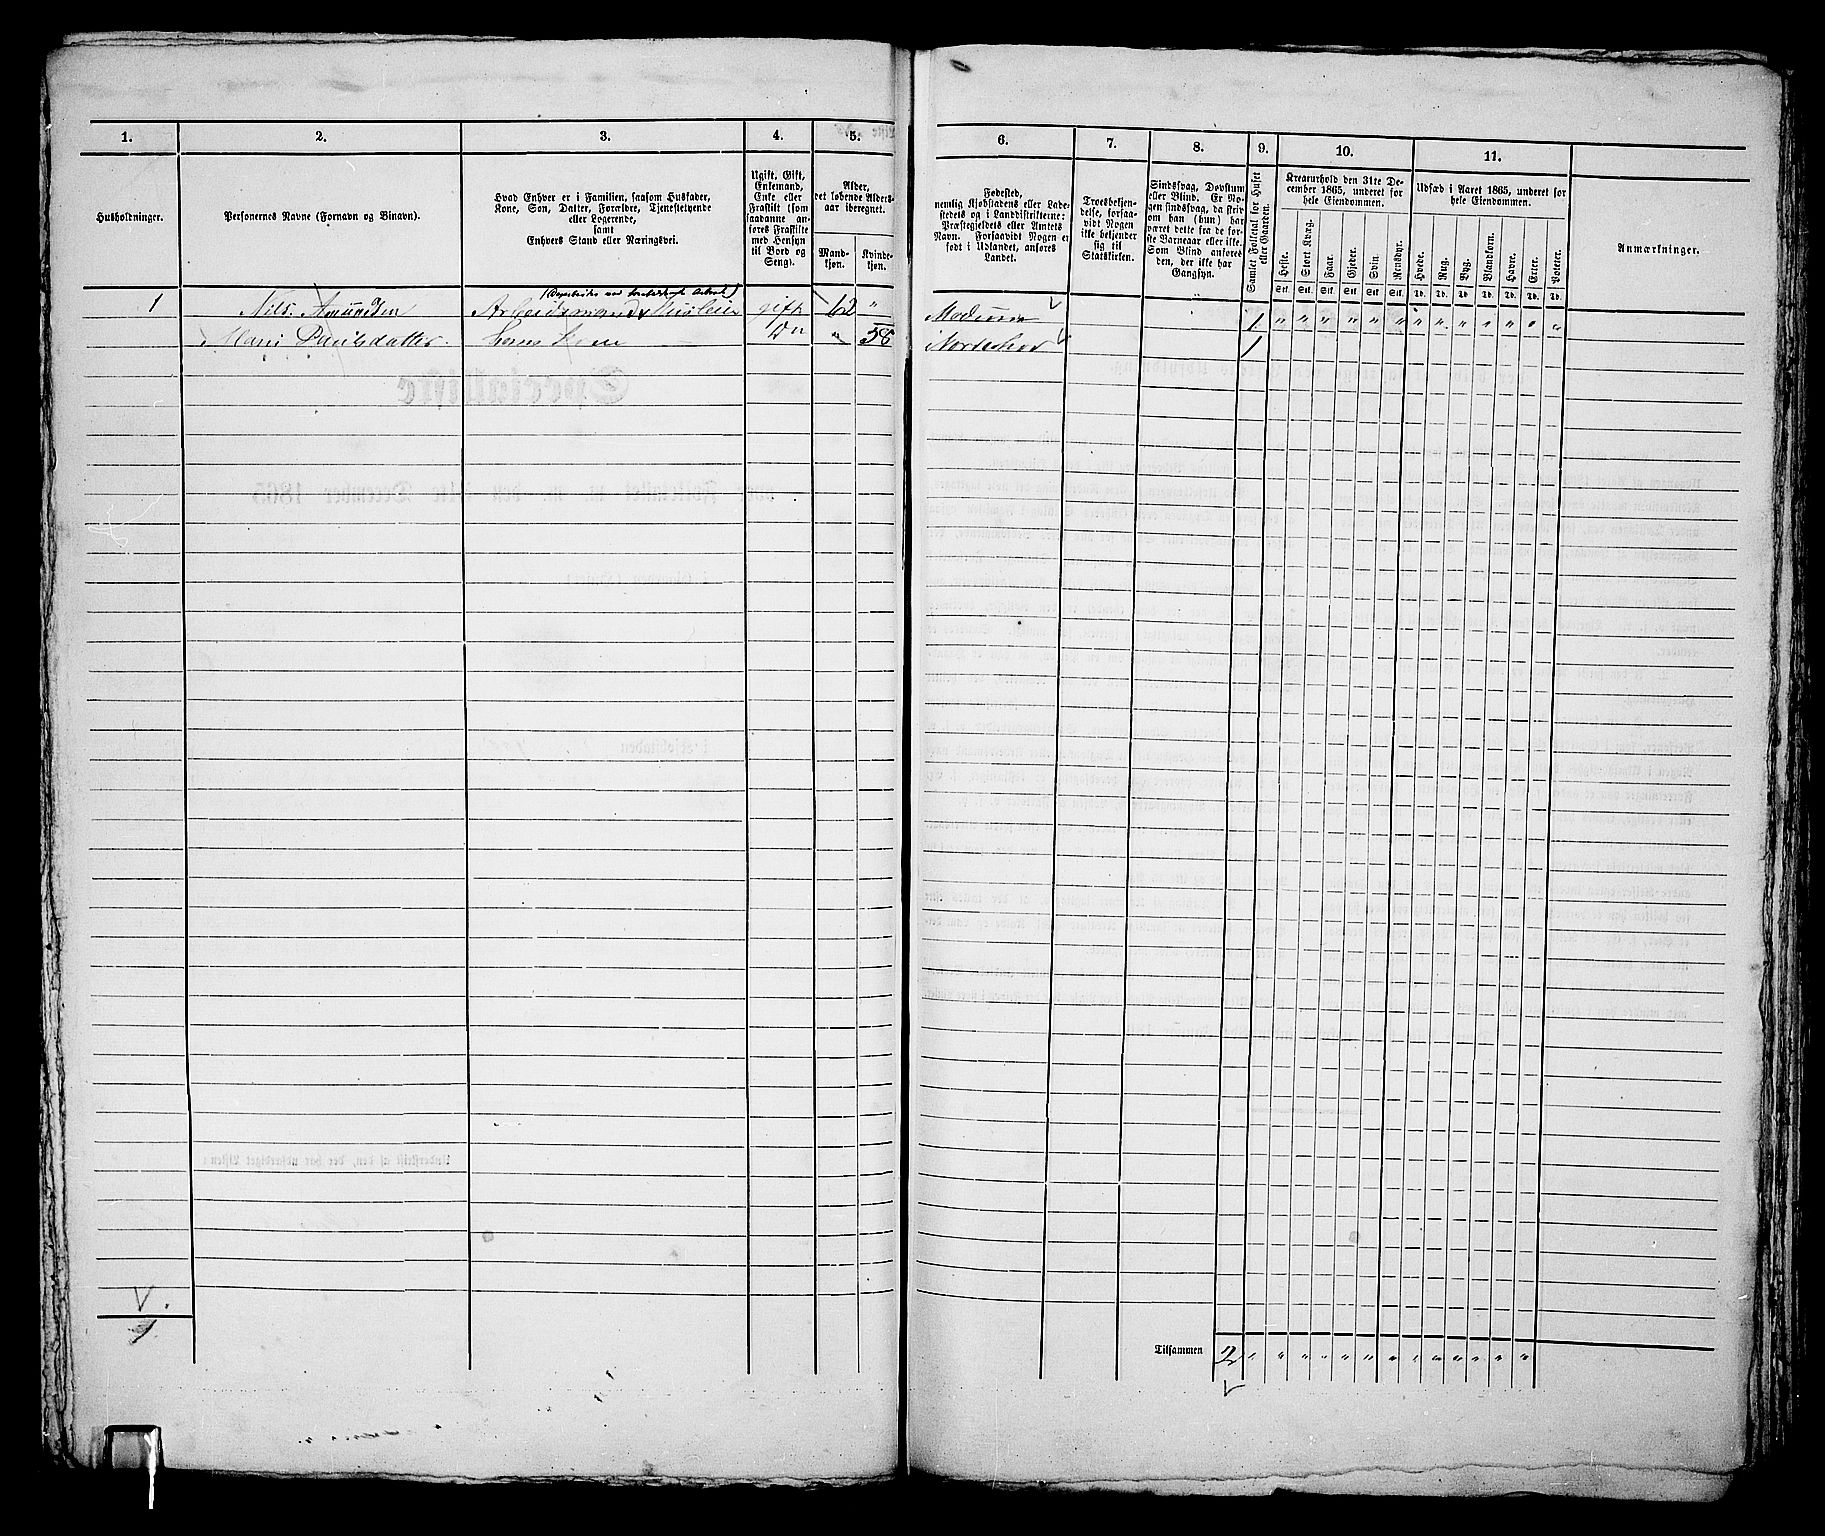 1.
2.
3.
4.
5.
6.
7.
8.
9.
10.
11.
Husholdninger.
Personernes Navne (Fornavn og Binavn).
Hvad Enhver er i Familien, saasom Husfader,
Kone, Søn, Datter, Forældre, Tjenestetyende
eller Logerende,
samt
Enhvers Stand eller Næringsvei.
Ugift, Gift,
Enkemand,
Enke eller
Fraskilt (som
saadanne an-
føres Fraskilte
med Hensyn
til Bord og
Seng).
Alder,
det løbende Alders-
aar iberegnet.
Mand-
kjøn.
Kvinde-
kjøn.
Fødested,
nemlig Kjøbstadens eller Lade-
stedets og i Landdistrikterne:
Præstegjeldets eller Amtets
Navn. Forsaavidt Nogen er
født i Udlandet, anføres
Landet.
Troesbekjen-
delse, forsaa-
vidt Nogen
ikke bekjender
sig til
Statskirken.
Sindssvag, Døvstum
eller Blind. Er No-
gen sindssvag, da skriv
om han (hun) har
været dette fra de før-
ste Barneaar eller ikke.
Som Blind anføres
den, der ikke har
Gangsyn.
Samlet Folketal for Huset
eller Gaarden.
Kreaturhold den 31te De-
cember 1865, underet for
hele Eiendommen.
Heste. Stort Kvæg. Faar. Gjeder. Svin. Rensdyr.
Stk. Stk. Stk. Stk. Stk. Stk.
Udsæd i Aaret 1865, underet for
hele Eiendommen.
Hvede. Rug. Byg. Blandkorn. Havre. Erter. Poteter.
Td. Td. Td. Td. Td. Td. Td.
Anmærkninger.
1 Nils Amundsen Arbeidsmand gift 62 " Modum 1 " " " " " " " " " " " " "
Paulsdatter Do " 58 1
Tilsammen 2 " " " " " " " " " " " " "
1